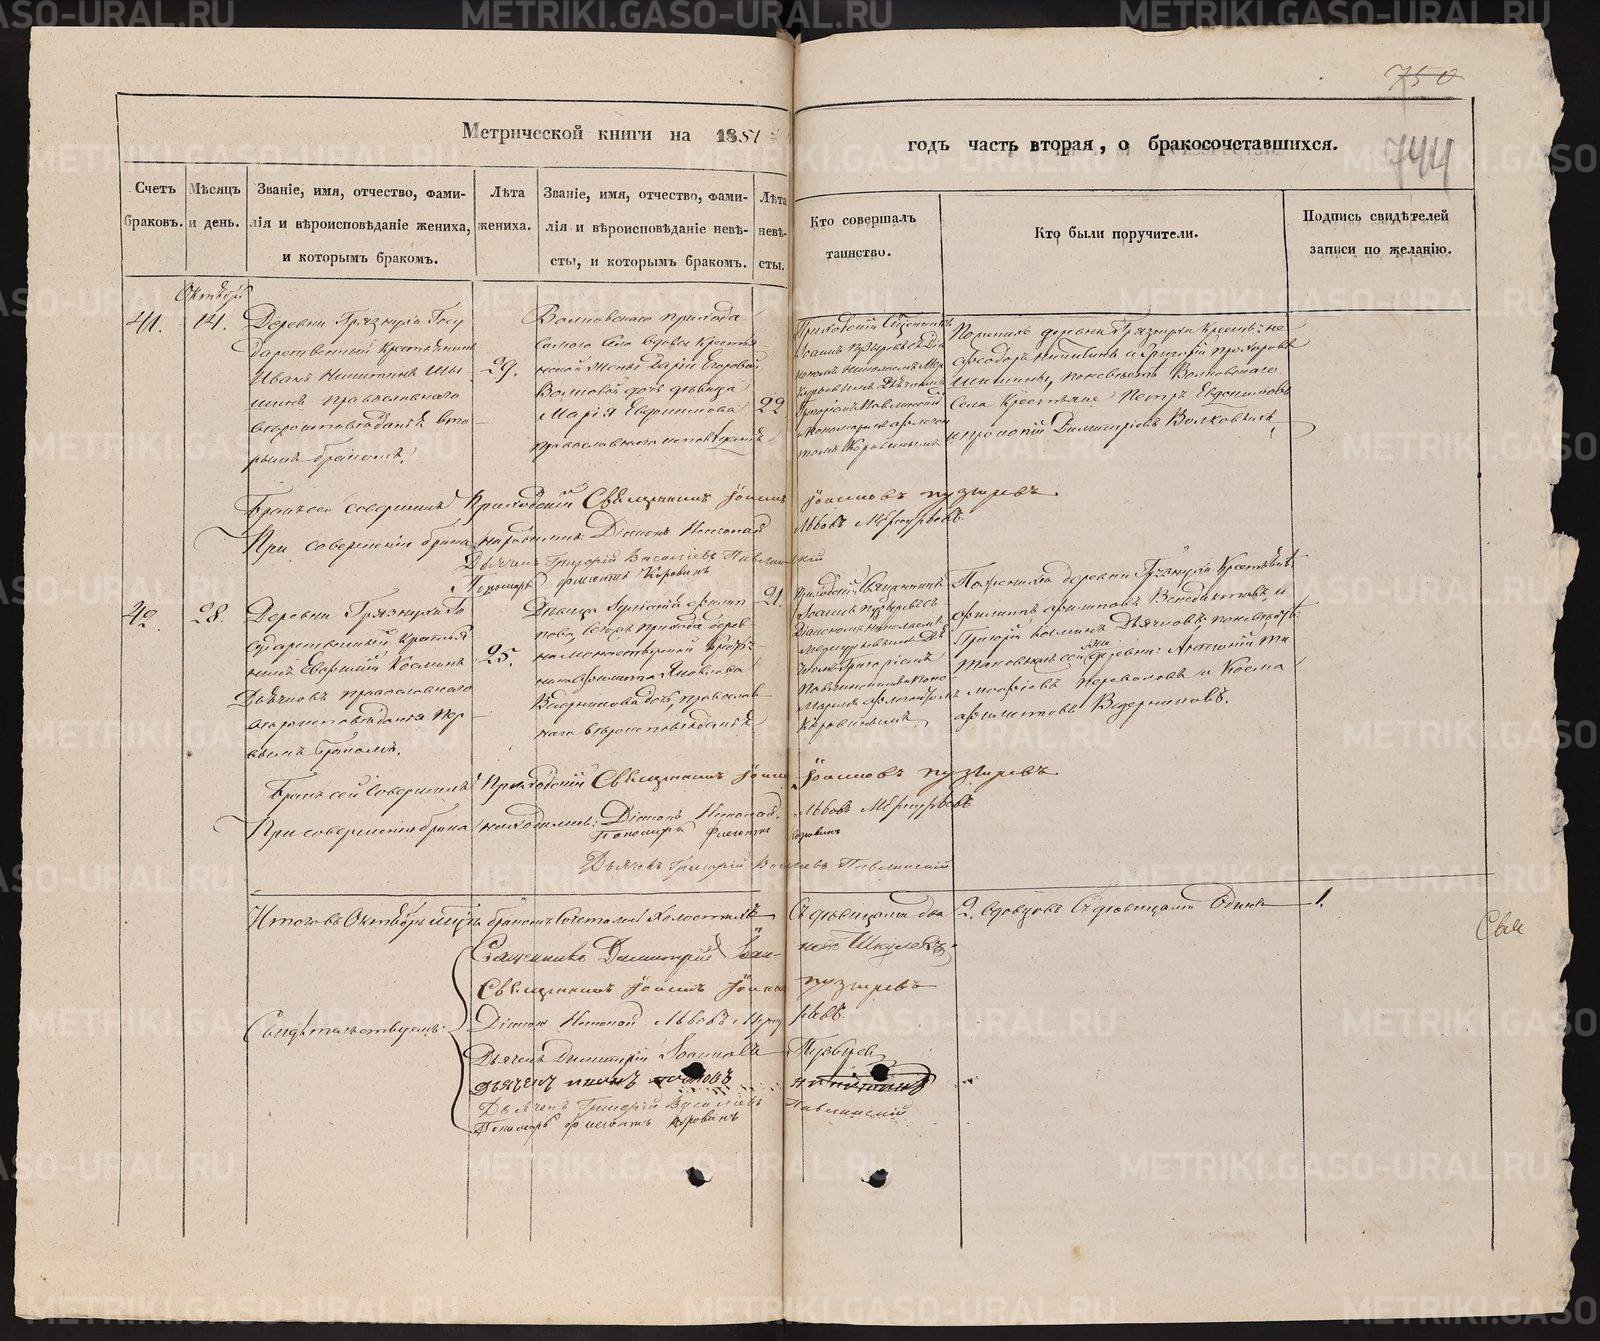 750
744
Метрической книги на 1851
годъ часть вторая, о бракосочетавшихся.
Счетъ браковъ.
Мѣсяцъ и день.
Званіе, имя, отчество, фами-
лія и вѣроисповѣданіе жениха,
и которымъ бракомъ.
Лѣта
жениха.
Званіе, имя, отчество, фами-
лія и вѣроисповѣданіе невѣ-
сты, и которымъ бракомъ.
Лѣта
невѣ-
сты.
Кто совершалъ
таинство.
Кто были поручители.
Подпись свидѣтелей
записи по желанію.
Октябрь
41.
14.
Деревни Грязнухи Госу
дарственный Крестьянинъ
Иванъ Никитинъ Ши
шинъ православнаго
вероисповѣданія вто
рымъ бракомъ.
29.
Волковскаго прихода
села вдовы Крестья
нской жены Дарьи Егоровой
Волковой дочь девица
Марія Евдокимова
православнаго исповѣданія
22
Приходскій Священникъ
Іоаннъ Пузыревъ съ Діа
кономъ Николаемъ Мер
курьевымъ Дьячкомъ
Григоріемъ Павлинскимъ
и Пономаремъ Флегон
томъ Коровинымъ
По женихѣ деревни Грязнухи Крестьяне
Феодоръ Никитинъ и Григорій Прохоровъ
Шишины, по невѣстѣ Волковскаго
Села Крестьяне Петръ Евдокимовъ
и Прокопій Димитріевъ Волковы
Бракъ сей совершилъ Приходскій Священникъ Іоаннъ Іоанновъ Пузыревъ.
При совершеніи брака находились: Діаконъ Николай Львовъ Меркурьевъ.
Дьячекъ Григорій Василіевъ Павлинскій
Пономарь Флегонтъ Коровинъ
42.
28.
Деревни Грязнухи Го
сударственный Крестья
нинъ Косминъ
Дьячковъ православнаго
вероисповѣданія пер
вымъ бракомъ.
25.
Девица
прихода дерев
ни Монастырской
Филиппа Яковлева
Ведерникова дочь, православ
наго вѣроисповѣданія
21.
Приходскій Священникъ
Іоаннъ Пузыревъ съ
Діакономъ Николаемъ
Меркурьевымъ Дья
чкомъ Григоріемъ
Павлинскимъ и Поно
маремъ Флегонтомъ
Коровинымъ
По женихѣ деревни Грязнухи Крестьяне
Филиппъ Филипповъ Венедиктовъ и
Григорій Косминъ Дьячковъ, по невѣстѣ
деревни: Ти
мофѣевъ Переваловъ и Косма
Филипповъ Ведерниковъ.
Бракъ сей Совершилъ Приходскій Священникъ Іоаннъ Іоанновъ Пузыревъ
При совершеніи брака находились: Діаконъ Николай Львовъ Меркурьевъ
Пономарь Флегонтъ Коровинъ
Дьячекъ Григорій Василіевъ Павлинскій
Итого въ Октябрѣ мцѣ бракомъ Сочеталось холостыхъ Съ девицами два 2. вдовцовъ Съ девицами Одинъ 1.
Свидѣтельствуемъ:
Священникъ Димитрій
Священникъ Іоаннъ Іоанновъ Пузыревъ
Діаконъ Николай Львовъ Меркурьевъ.
Дьячекъ Димитрій Іоанновъ Пузыревъ
Дьячекъ Григорій Василіевъ Павлинскій
Пономарь Флегонтъ Коровинъ
Свя
METRIKI.GASO-URAL.RU